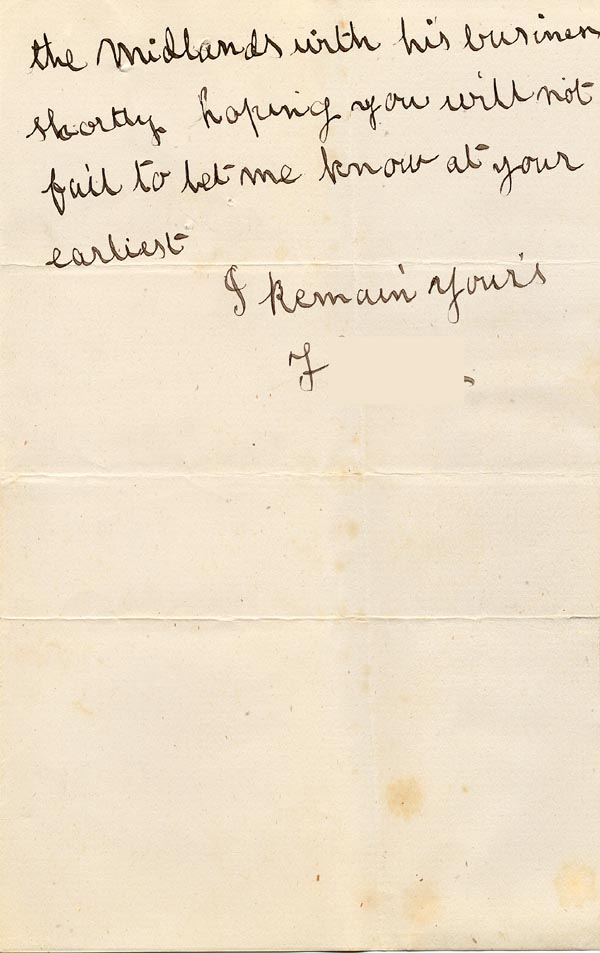 the Midlands with his business
shortly hoping you will not
fail to let me know at your
earliest
I Remain your's
F